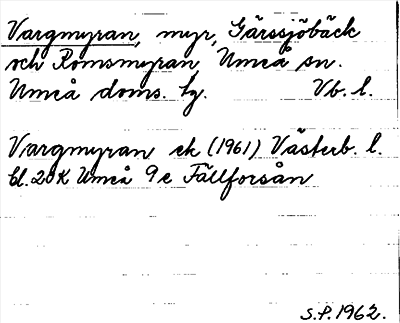 Vargmyran, myr, Gärssjöbäck
och Romsmyran, Umeå sn.
Umeå doms. tg. Vb. l.
Vargmyran ek (1961) Västerb. l.
bl. 20K Umeå 9e Fällforsån
S.P. 1962.